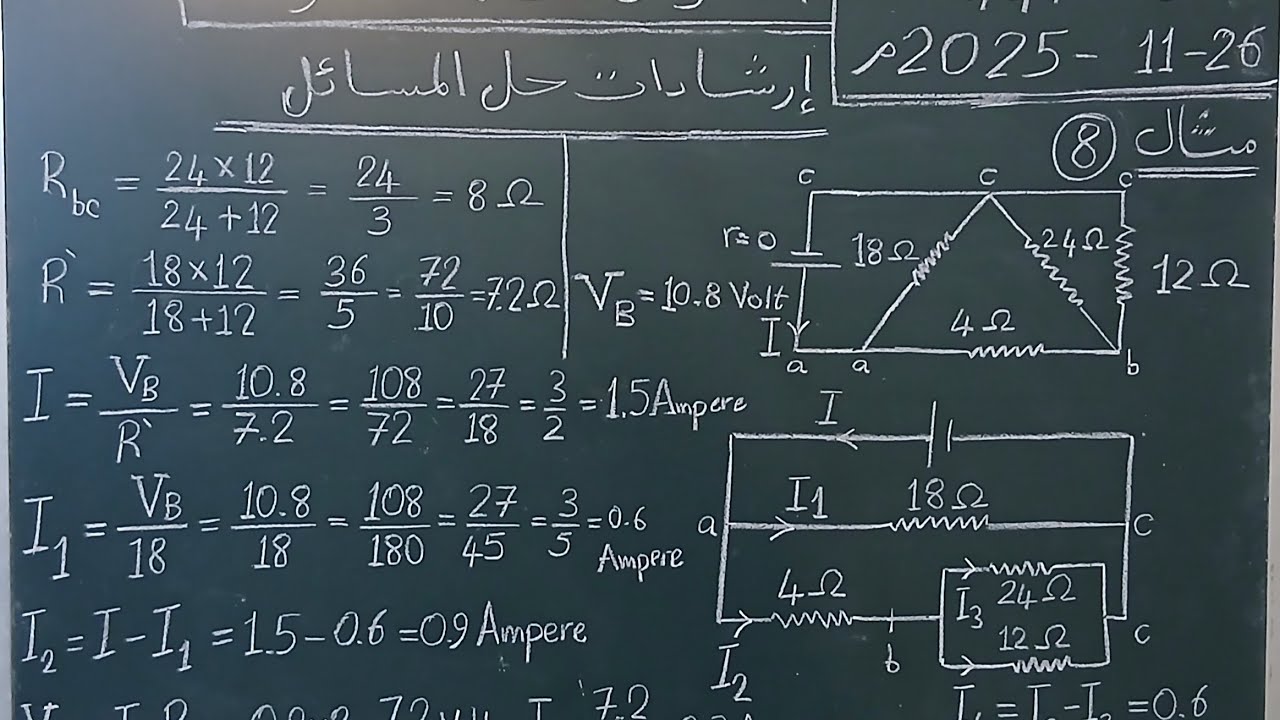 2025 - 11-26م
إرشادات حل المسائل
مثال 8
R_bc = (24×12)/(24+12) = 24/3 = 8 Ω
R` = (18×12)/(18+12) = 36/5 = 72/10 = 7.2Ω
V_B = 10.8 Volt
I = V_B/R` = 10.8/7.2 = 108/72 = 27/18 = 3/2 = 1.5 Ampere
I_1 = V_B/18 = 10.8/18 = 108/180 = 27/45 = 3/5 = 0.6 Ampere
I_2 = I - I_1 = 1.5 - 0.6 = 0.9 Ampere
7.2
c c c
r=0 18Ω 24Ω 12Ω
I 4Ω
a a b
I
I_1 18Ω
a c
4Ω I_3 24Ω
12Ω
I_2 b c
= 0.6